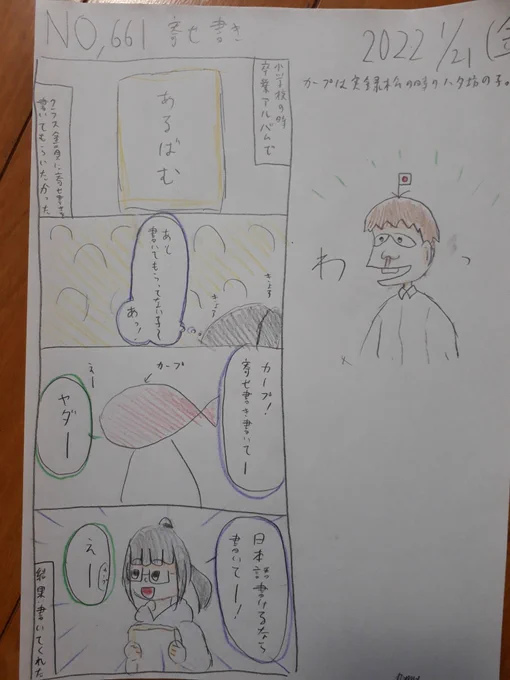 NO,661 寄せ書き
2022 1/21 (金
小学校の時
卒業アルバムで
あるばむ
クラス全員に寄せ書き
書いてもらいたかった
あと
書いてもらってない子は
あっ!
きょろ
きょろ
カープ!
寄せ書き書いてー
カープ
えー
ヤダー
日本語書けるなら
書いてー!
えー
結果書いてくれた
わ
っ